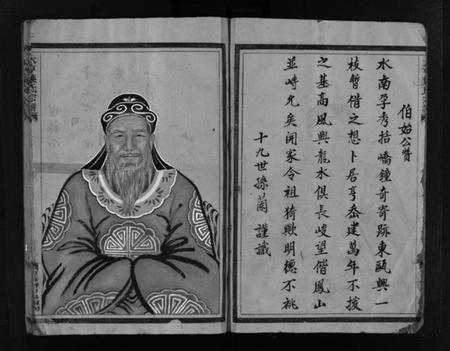 伯始公贊
水南孕秀括嶠鍾奇寄跡東甌興一
枝暫借之想卜居亨泰建萬年不拔
之基高風與龍水俱長峻望偕鳳山
並峙允矣開家令祖猗歟明德不祧
十九世孫蘭 謹識